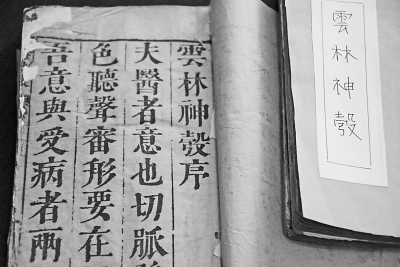 雲林神彀
雲林神彀序
夫醫者意也切脈
色聽聲審形要在
吾意與愛病者兩